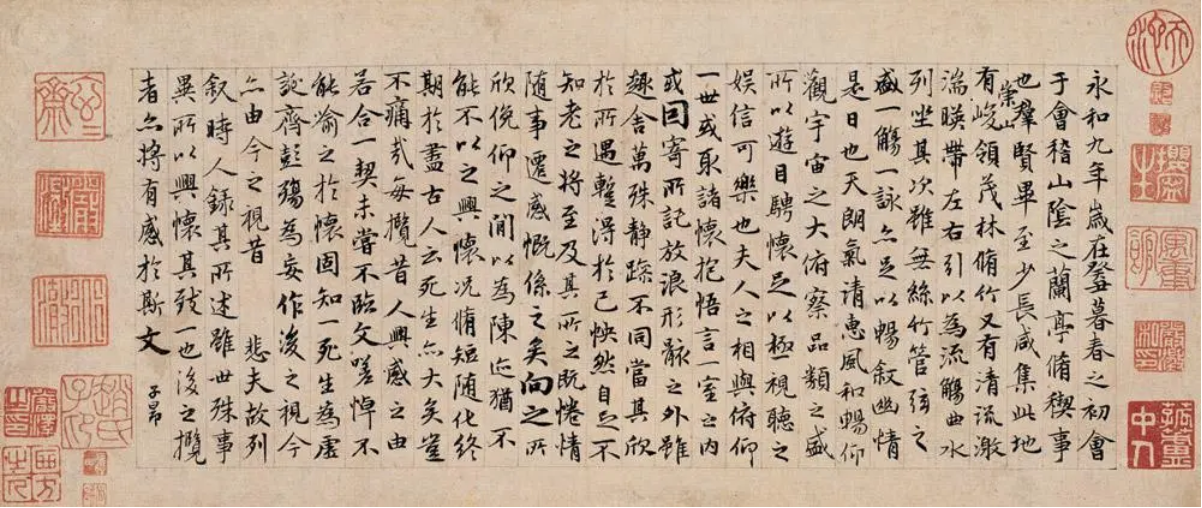 永和九年歲在癸丑暮春之初會
于會稽山陰之蘭亭脩稧事
也羣賢畢至少長咸集此地
有崇山峻領茂林脩竹又有清流激
湍暎帶左右引以為流觴曲水
列坐其次雖無絲竹管弦之
盛一觴一詠亦足以暢敘幽情
是日也天朗氣清惠風和暢仰
觀宇宙之大俯察品類之盛
所以遊目騁懷足以極視聽之
娛信可樂也夫人之相與俯仰
一世或取諸懷抱悟言一室之內
或因寄所託放浪形骸之外雖
趣舍萬殊靜躁不同當其欣
於所遇蹔得於己怏然自足不
知老之將至及其所之既惓情
隨事遷感慨係之矣向之所
欣俛仰之閒以為陳迹猶不
能不以之興懷況脩短隨化終
期於盡古人云死生亦大矣豈
不痛哉每攬昔人興感之由
若合一契未嘗不臨文嗟悼不
能喻之於懷固知一死生為虛
誕齊彭殤為妄作後之視今
亦由今之視昔 悲夫故列
敘時人錄其所述雖世殊事
異所以興懷其致一也後之攬
者亦將有感於斯文
子昂
趙氏子昂